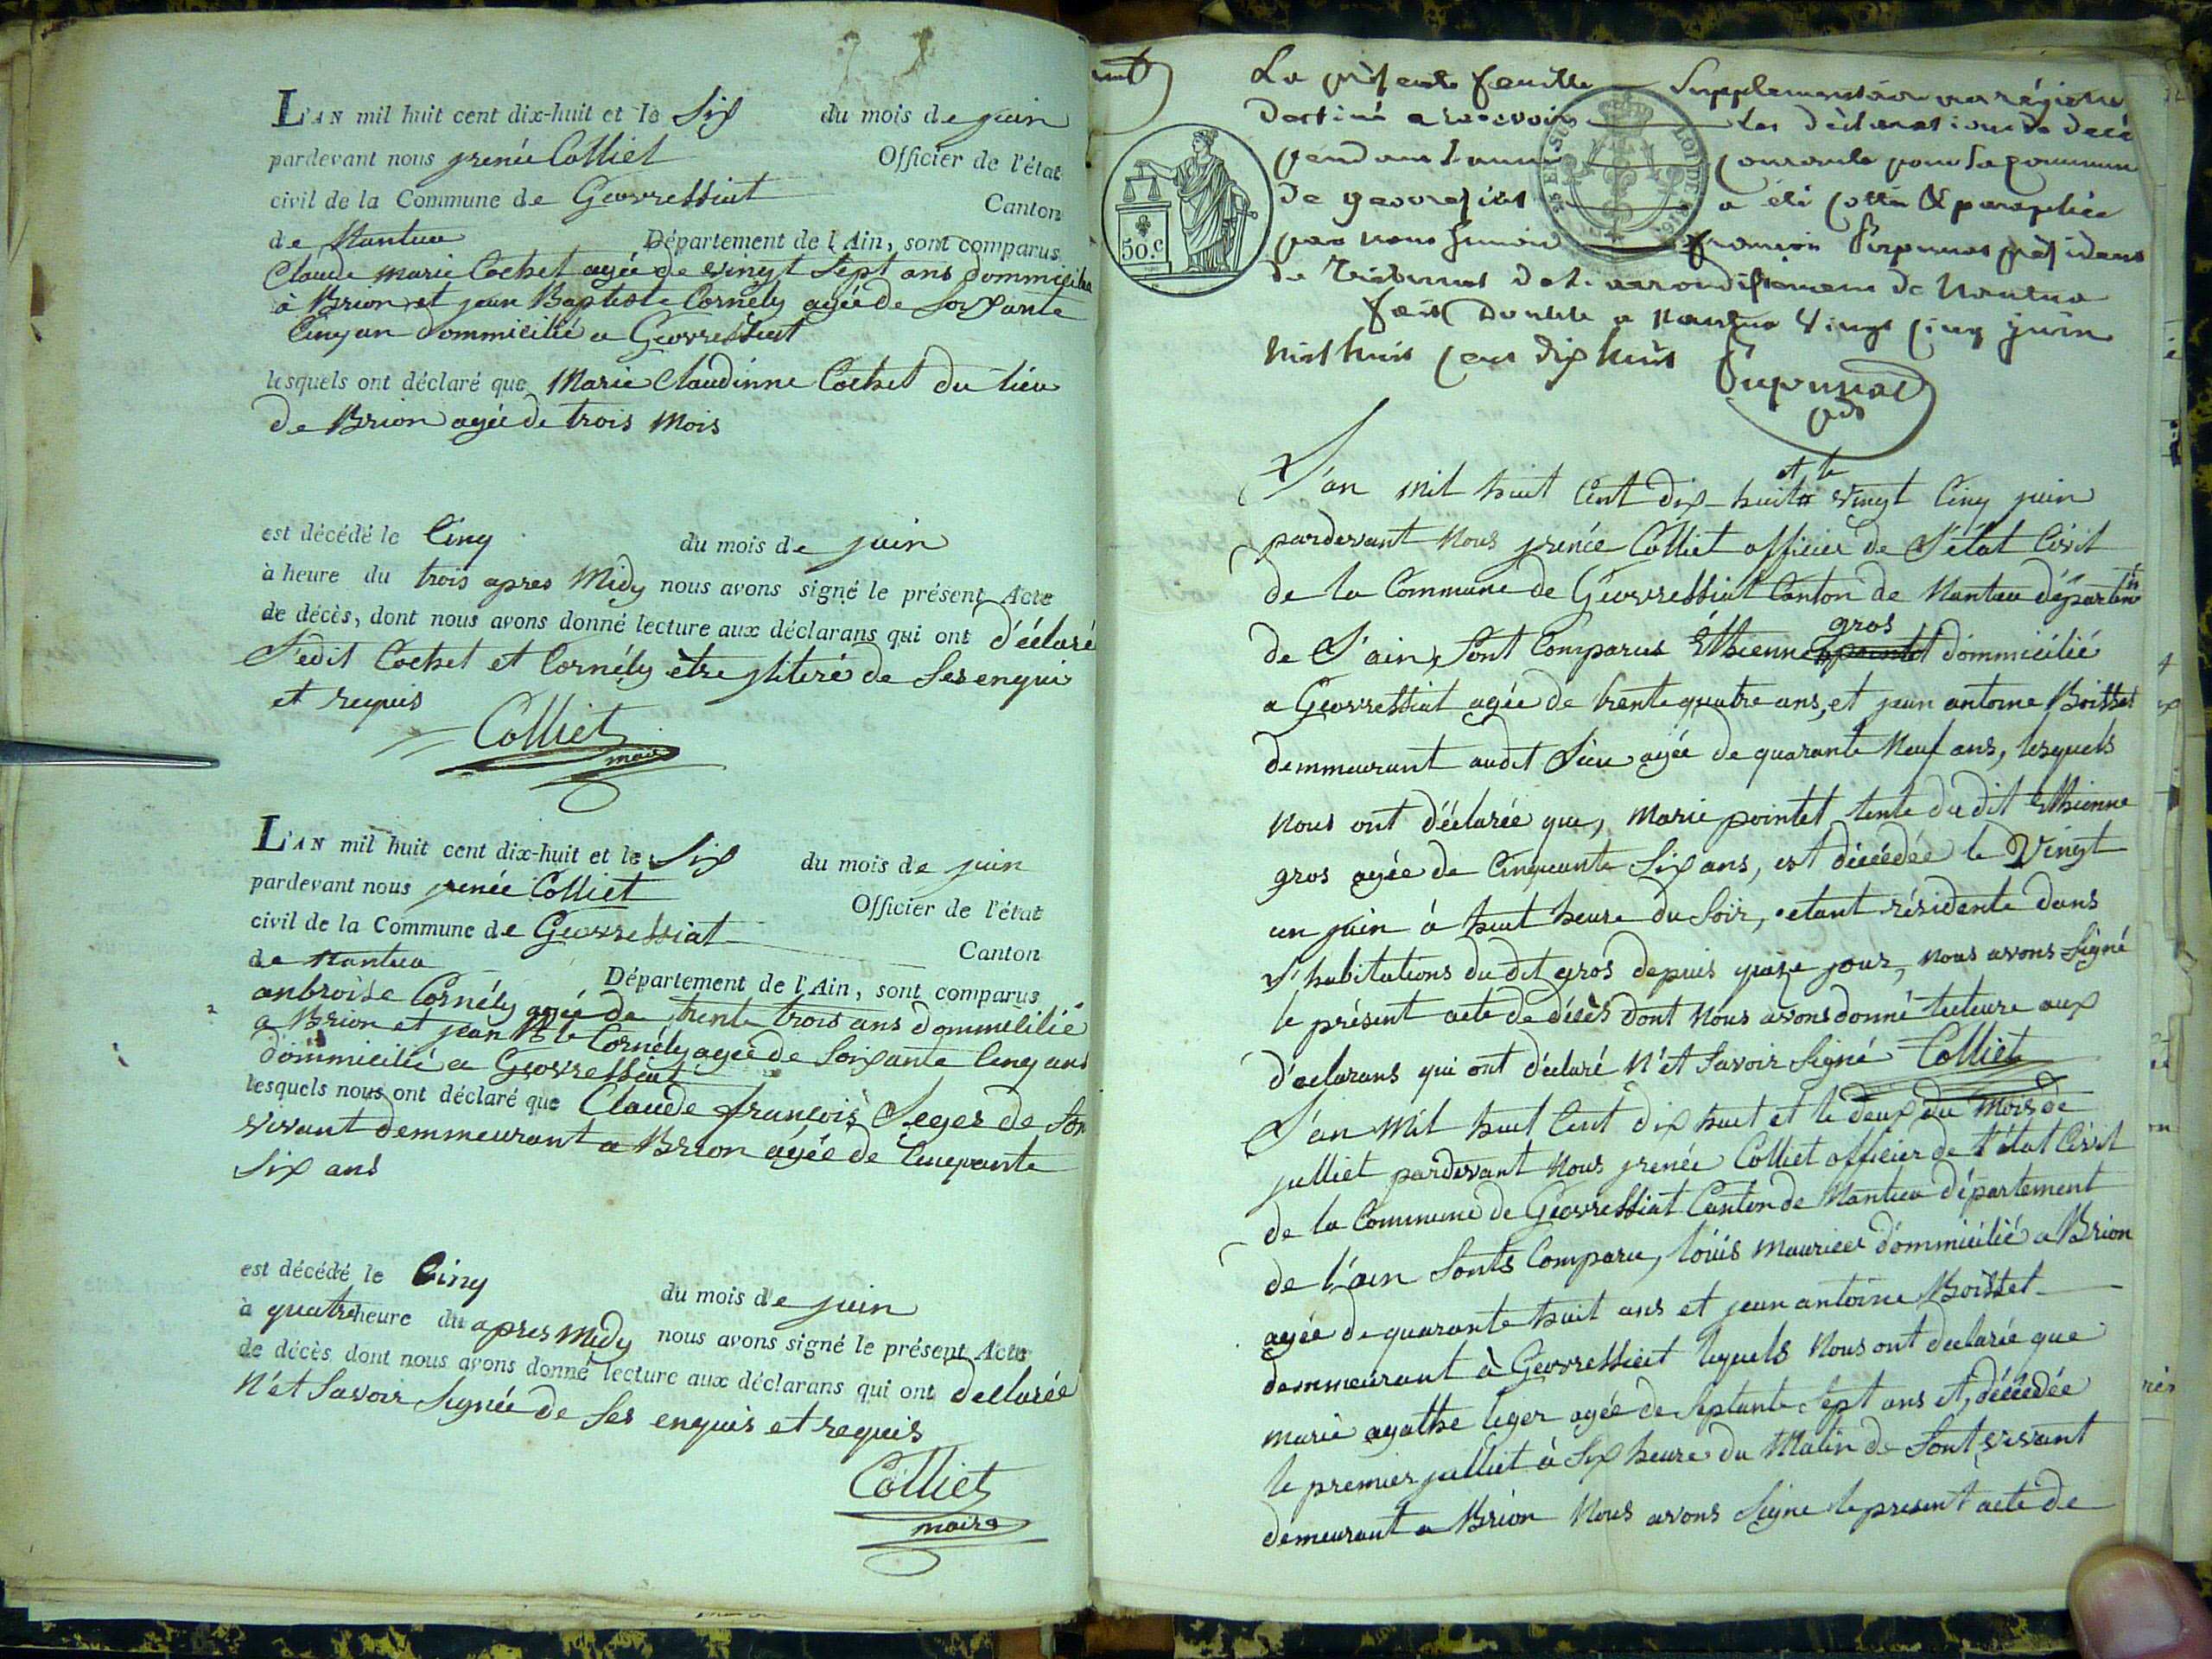 L'AN mil huit cent dix-huit et le Six du mois de juin
pardevant nous Colliet Officier de l'état
civil de la Commune de Geovressiat Canton
de Nantua Département de l'Ain, sont comparus
Claude marie Cochet agée de vingt Sept ans dommicilié
à Brion et jean Baptiste Cornély agée de Soixante
Cinq an dommicilié a Geovressiat
lesquels ont déclaré que Marie Claudinne Cochet du lieu
de Brion agée de trois Mois
est décédé le Cinq du mois de juin
à heure du trois apres Midy nous avons signé le présent Acte
de décès, dont nous avons donné lecture aux déclarans qui ont déclaré
Cochet et Cornély être de Ses enquis
et requis
Colliet
maire
L'AN mil huit cent dix-huit et le Six du mois de juin
pardevant nous Colliet Officier de l'état
civil de la Commune de Geovressiat Canton
de Nantua Département de l'Ain, sont comparus
anbroise Cornély agée de trente trois ans dommicilié
a Brion et jean Bte Cornély agée de Soixante Cinq ans
dommicilié a Geovressiat
lesquels nous ont déclaré que Claude françois Leger de Son
vivant demmeurant a Brion agée de Cinquante
Six ans
est décédé le Cinq du mois de juin
à quatre heure du apres Midy nous avons signé le présent Acte
de décès dont nous avons donné lecture aux déclarans qui ont declarée
N'et Savoir Signée de Ses enquis et requis
Colliet
maire
La présente feuille Supplementaire au régistre
destiné a recevoir les déclarations de décè
pendant l'année courante pour la commune
de geovresiat a été cotté & paraphée
par nous president
du Tribunal de l'arrondissement de Nantua
fait Double a Nantua Vingt cinq juin
mil huit cent dix huit
50.c
L'an Mil huit Cent dix-huit et le vingt Cinq juin
pardevant Nous Colliet officier de L'état Civil
de la Commune de Géovressiat Canton de Nantua départem
de L'ain, Sont Comparus Ethienne gros dommicilié
a Geovressiat agée de trente quatre ans, et jean antoine Boisset
demmeurant audit Lieu agée de quarante Neuf ans, lesquels
Nous ont déclarée que, Marie pointet tente du dit Ethienne
gros agée de Cinquante Six ans, est décédée le Vingt
un juin à huit heure du Soir, etant résidente dans
L'habitations du dit gros depuis quize jour, nous avons Signé
le présent acte de décès dont Nous avons donné lecture aux
déclarans qui ont déclaré N'et Savoir Signé Colliet
L'an Mil huit Cent dix huit et le deux du Mois de
julliet pardevant Nous Colliet officier de l'état Civil
de la Commune de Geovressiat Canton de Nantua département
de l'ain Sonts Comparu, loüis Maurice dommicilié a Brion
agée de quarante huit ans et jean antoine Boisset
demmeurant à Geovressiat lequels Nous ont declarée que
marie agathe leger agée de Septante Sept ans et, décédée
le premier julliet à Six heure du Matin de Sont vivant
demeurant a Brion Nous avons Signe le present acte de